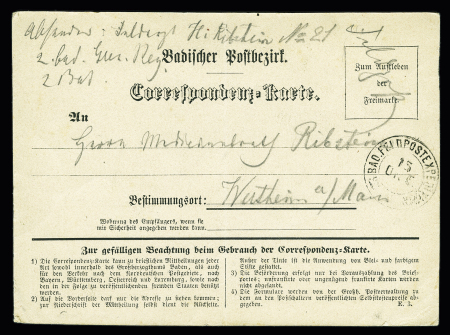 Absender: Feldarzt H. Ribstein No 21
2. bad. Gren. Reg.
2 Bat
Badischer Postbezirk.
Correspondenz-Karte.
Zum Aufkleben
der
Freimarke.
An
Herrn Medicinalrath Ribstein
BAD. FELDPOSTEXP
15
Bestimmungsort: Wertheim a/Main
Wohnung des Empfängers, wenn sie
mit Sicherheit angegeben werden kann.
Zur gefälligen Beachtung beim Gebrauch der Correspondenz-Karte.
1) Die Correspondenz-Karte kann zu brieflichen Mittheilungen jeder
Art sowohl innerhalb des Großherzogthums Baden, als auch
für den Verkehr nach dem Norddeutschen Postgebiet, nach
Bayern, Württemberg, Oesterreich und Luxemburg, sowie nach
den in der Folge zu veröffentlichenden fremden Staaten benützt
werden.
2) Auf die Vorderseite darf nur die Adresse zu stehen kommen;
zur Niederschrift der Mittheilung selbst dient die Rückseite.
Außer der Tinte ist die Anwendung von Blei- und farbigem
Stifte gestattet.
3) Die Beförderung erfolgt nur bei Vorauszahlung des Brief-
portos; unfrankirte oder ungenügend frankirte Karten werden
nicht abgesendet.
4) Die Formulare werden von der Großh. Postverwaltung zu
dem an den Postschaltern veröffentlichten Selbstkostenpreise ab-
gegeben.
K. 3.